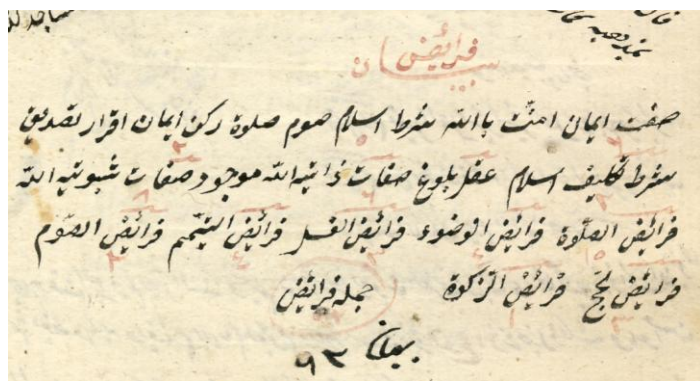 بيان فرائض
صفت ايمان امنت باالله شرط اسلام صوم صلوة ركن ايمان اقرار تصديق
شرط تكليف اسلام عقل بلوغ صفات ذاتيه الله موجود صفات ثبوتيه الله
فرائض الصلوة فرائض الوضوء فرائض الغسل فرائض التيمم فرائض الصوم
فرائض لحج فرائض الزكوة جمله فرائض
بيان ٩٣